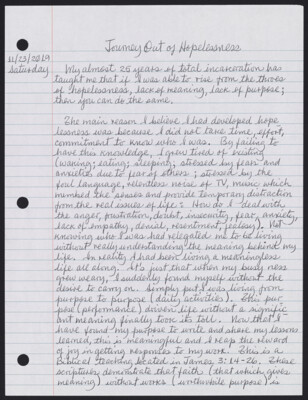 11/23/2019
Saturday
Journey Out of Hopelessness
My almost 25 years of total incarceration has
taught me that if I was able to rise from the throes
of hopelessness, lack of meaning, lack of purpose;
then you can do the same.
The main reason I believe I had developed hope
lessness was because I did not take time, effort,
commitment to know who I was. By failing to
have this knowledge, I grew tired of existing
(waning; eating; sleeping; stressed by fear and
anxieties due to fear of others; stressed by the
foul language, relentless noise of TV, music which
numbed the senses and provide temporary distraction
from the real issues of life: How do I deal with
the anger, frustration, doubt, insecurity, fear, anxiety,
lack of empathy, denial, resentment, jealousy). Not
knowing who I was had relegated me to be living
without really understanding the meaning behind my
life. In reality I had been living a meaningless
life all along. It's just that when my busy-ness
grew weary, I suddenly found myself without the
desire to carry on. Simply put I was living from
purpose to purpose (daily activities). This pur
pose (performance) driven life without a signific
ant meaning finally took its toll. Now that I
have found my purpose to write and share my lessons
learned, this is meaningful and I reap the reward
of joy in getting responses to my work. This is a
Biblical teaching located in James 3:14-26. These
scriptures demonstrate that faith (that which gives
meaning) without works (worthwhile purpose) is